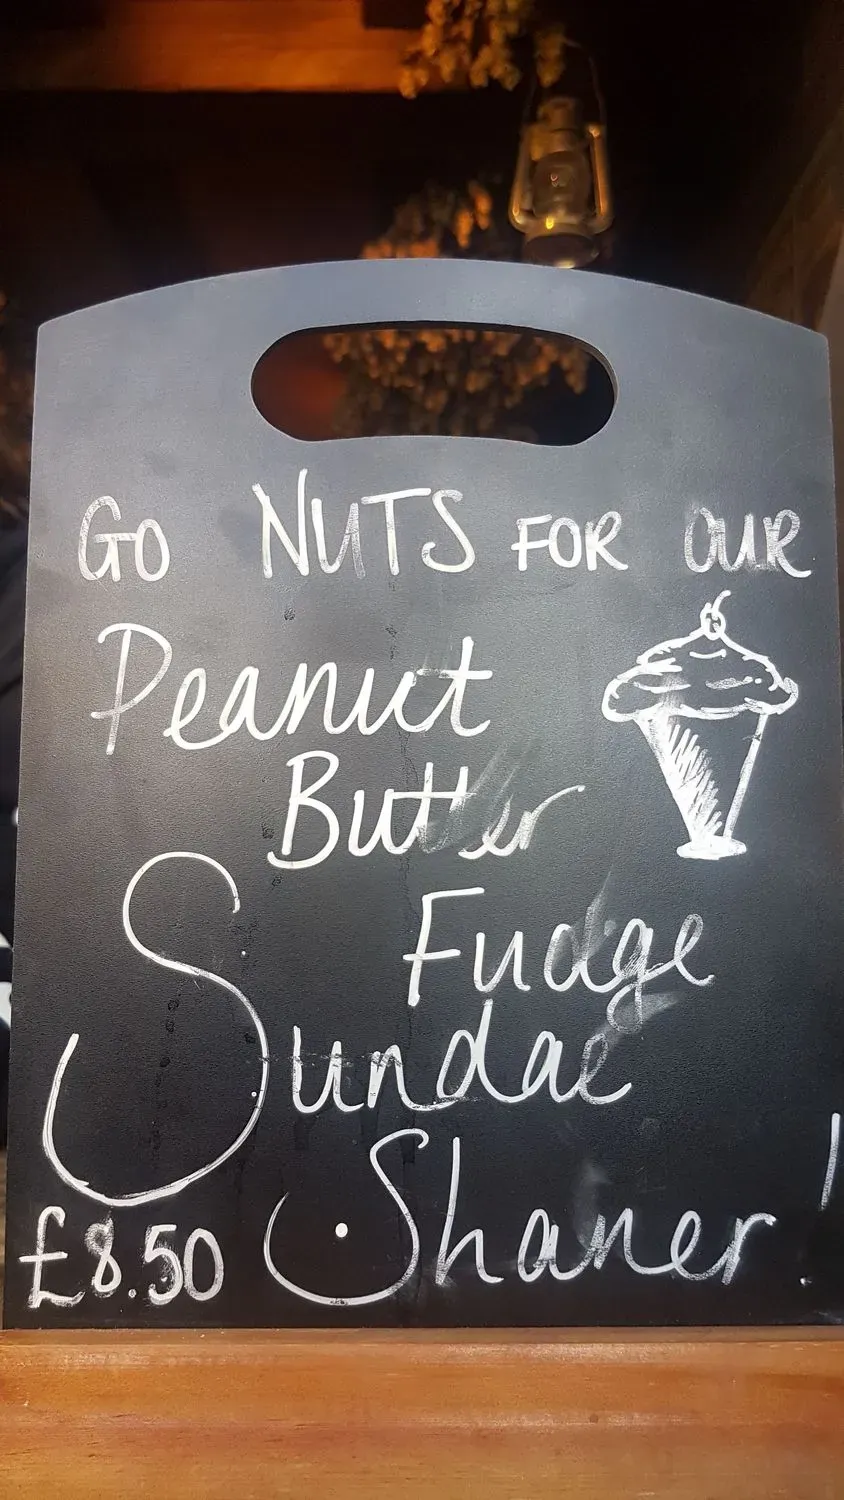 Go NUTS FOR OUR
Peanut
Butter
Fudge
Sundae
Sharer!
£8.50